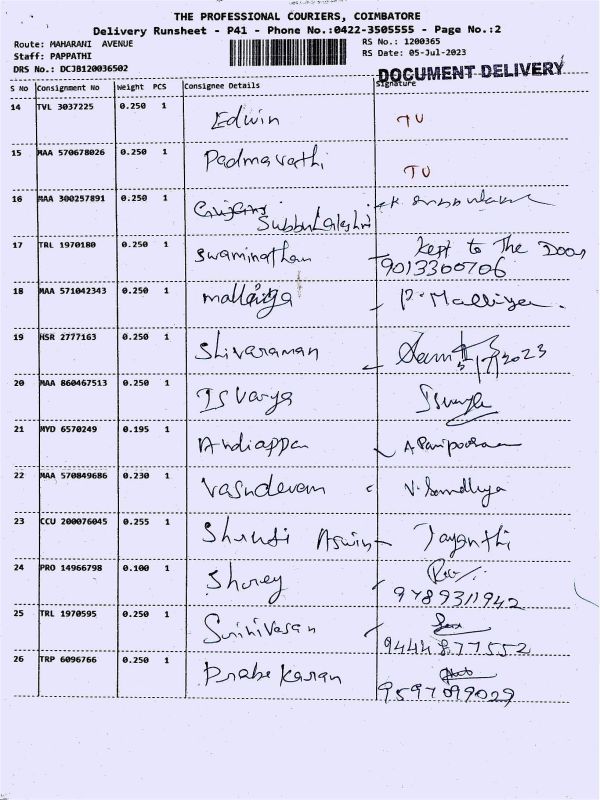 THE PROFESSIONAL COURIERS, COIMBATORE
Delivery Runsheet - P41 - Phone No.:0422-3505555 - Page No.:2
Route: MAHARANI AVENUE RS No.: 1200365
Staff: PAPPATHI RS Date: 05-Jul-2023
DRS No.: DCJB120036502
DOCUMENT DELIVERY
S No Consignment No Weight PCS Consignee Details Signature
14 TVL 3037225 0.250 1 Edwin TU
15 MAA 570678026 0.250 1 Padmavathi TU
16 MAA 300257891 0.250 1
Subbulakshmi
17 TRL 1970180 0.250 1 Swaminathan Kept to The Door
9013300706
18 MAA 571042343 0.250 1 P. Malliga
19 HSR 2777163 0.250 1 Shivaraman 5/7/2023
20 MAA 860467513 0.250 1 Isvarya
21 MYD 6570249 0.195 1 Andiappan
22 MAA 570849686 0.230 1 Vasudevan
23 CCU 200076045 0.255 1 Aswin Jayanthi
24 PRO 14966798 0.100 1
9789311942
25 TRL 1970595 0.250 1 Srinivasan
9444877552
26 TRP 6096766 0.250 1 Prabakaran
9597099029